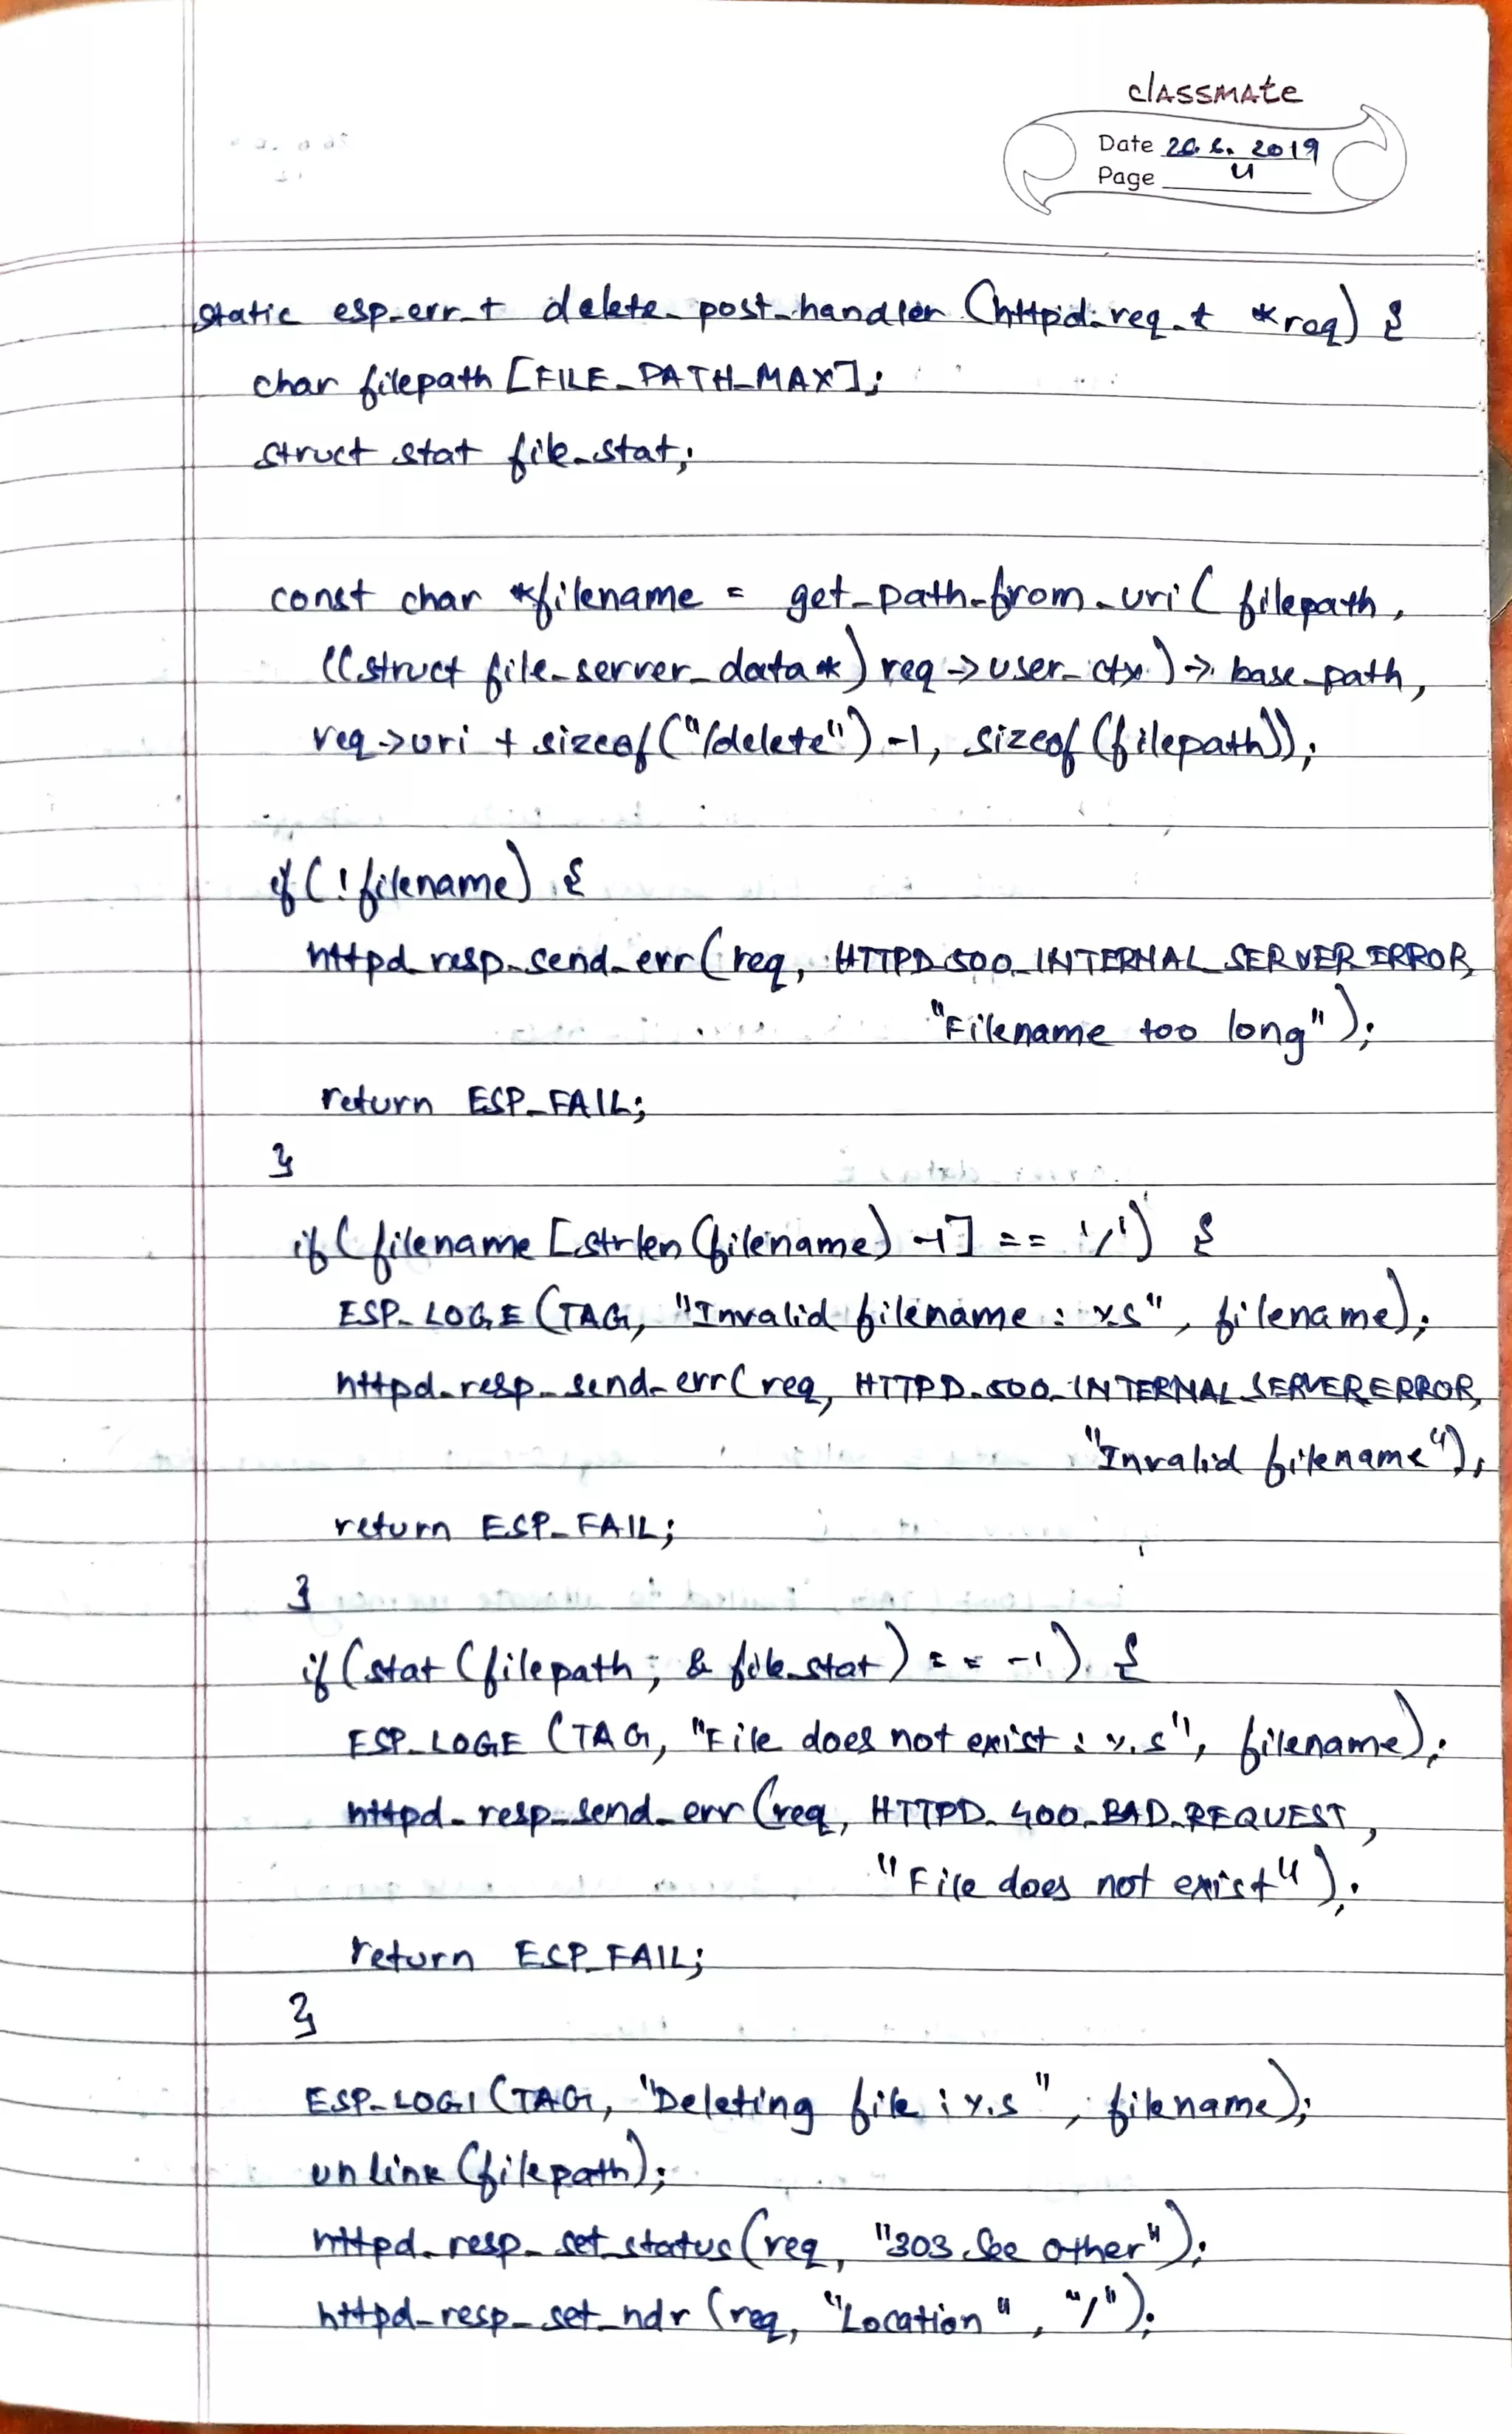 classmate
Date 20.6.2019
Page 4
static esp_err_t delete_post_handler (httpid_req_t *req) {
char filepath [FILE_PATH_MAX];
struct stat file_stat;
const char *filename = get_path_from_uri( filepath,
((struct file_server_data*) req->user_ctx)-> base_path,
req->uri + sizeof("/delete") -1, sizeof (filepath));
if(!filename) {
httpd_resp_send_err(req, HTTPD_500_INTERNAL_SERVER_ERROR,
"Filename too long");
return ESP_FAIL;
}
if(filename [strlen(filename) -1] == '/') {
ESP_LOGE (TAG, "Invalid filename : %s", filename);
httpd_resp_send_err(req, HTTPD_500_INTERNAL_SERVER_ERROR,
"Invalid filename");
return ESP_FAIL;
}
if(stat (filepath, & file_stat) == -1) {
ESP_LOGE (TAG, "File does not exist : %s", filename);
httpd_resp_send_err(req, HTTPD_400_BAD_REQUEST,
"File does not exist");
return ESP_FAIL;
}
ESP_LOGI (TAG, "Deleting file : %s", filename);
unlink (filepath);
httpd_resp_set_status(req, "303 See Other");
httpd_resp_set_hdr (req, "Location", "/");